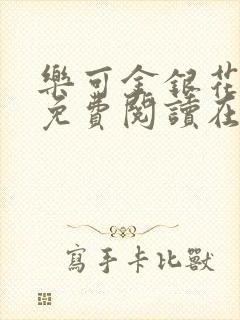 樂可金銀花
免費閱讀在
寫手卡比獸